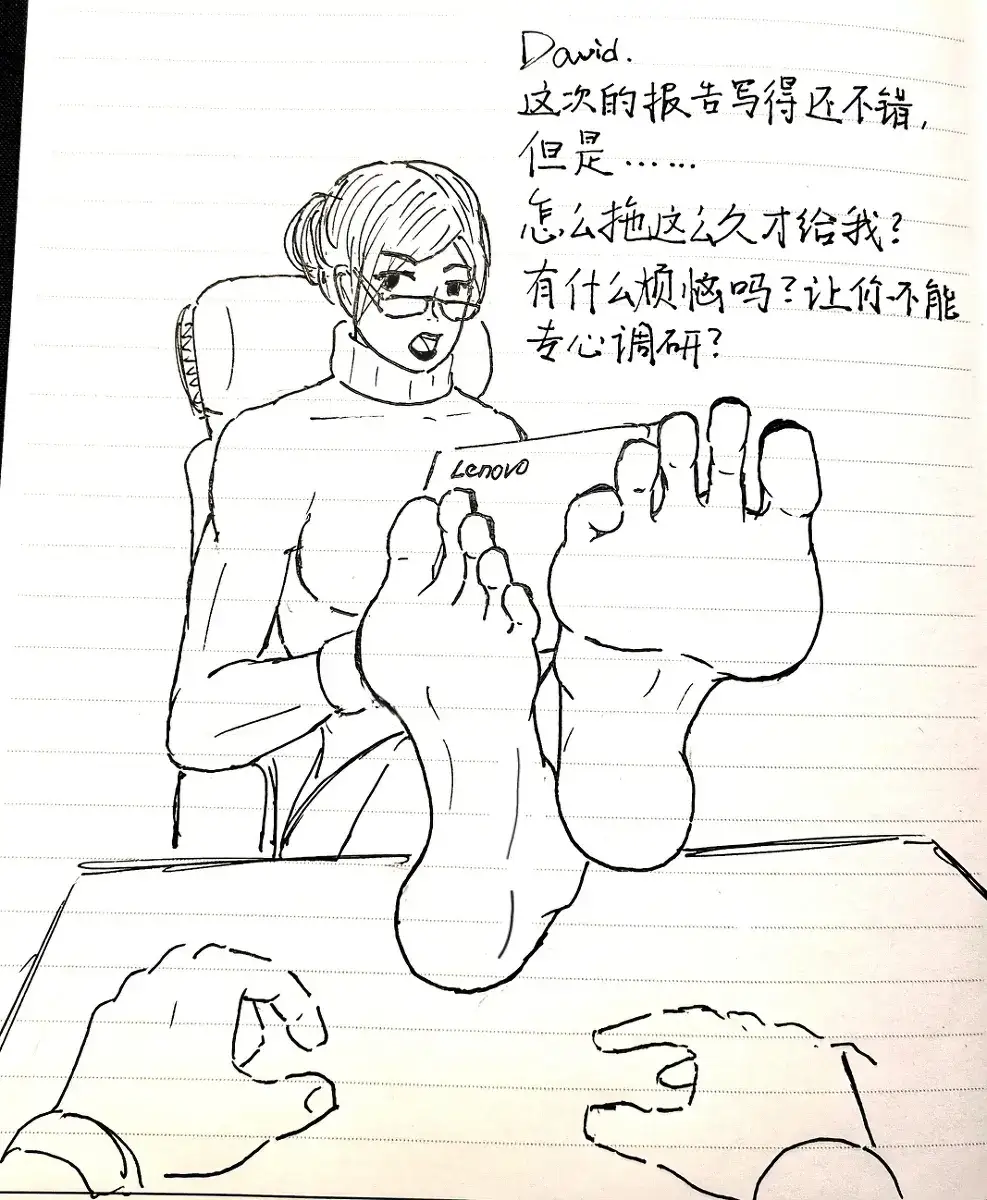 David.
这次的报告写得还不错,
但是……
怎么拖这么久才给我?
有什么烦恼吗?让你不能
专心调研?
Lenovo